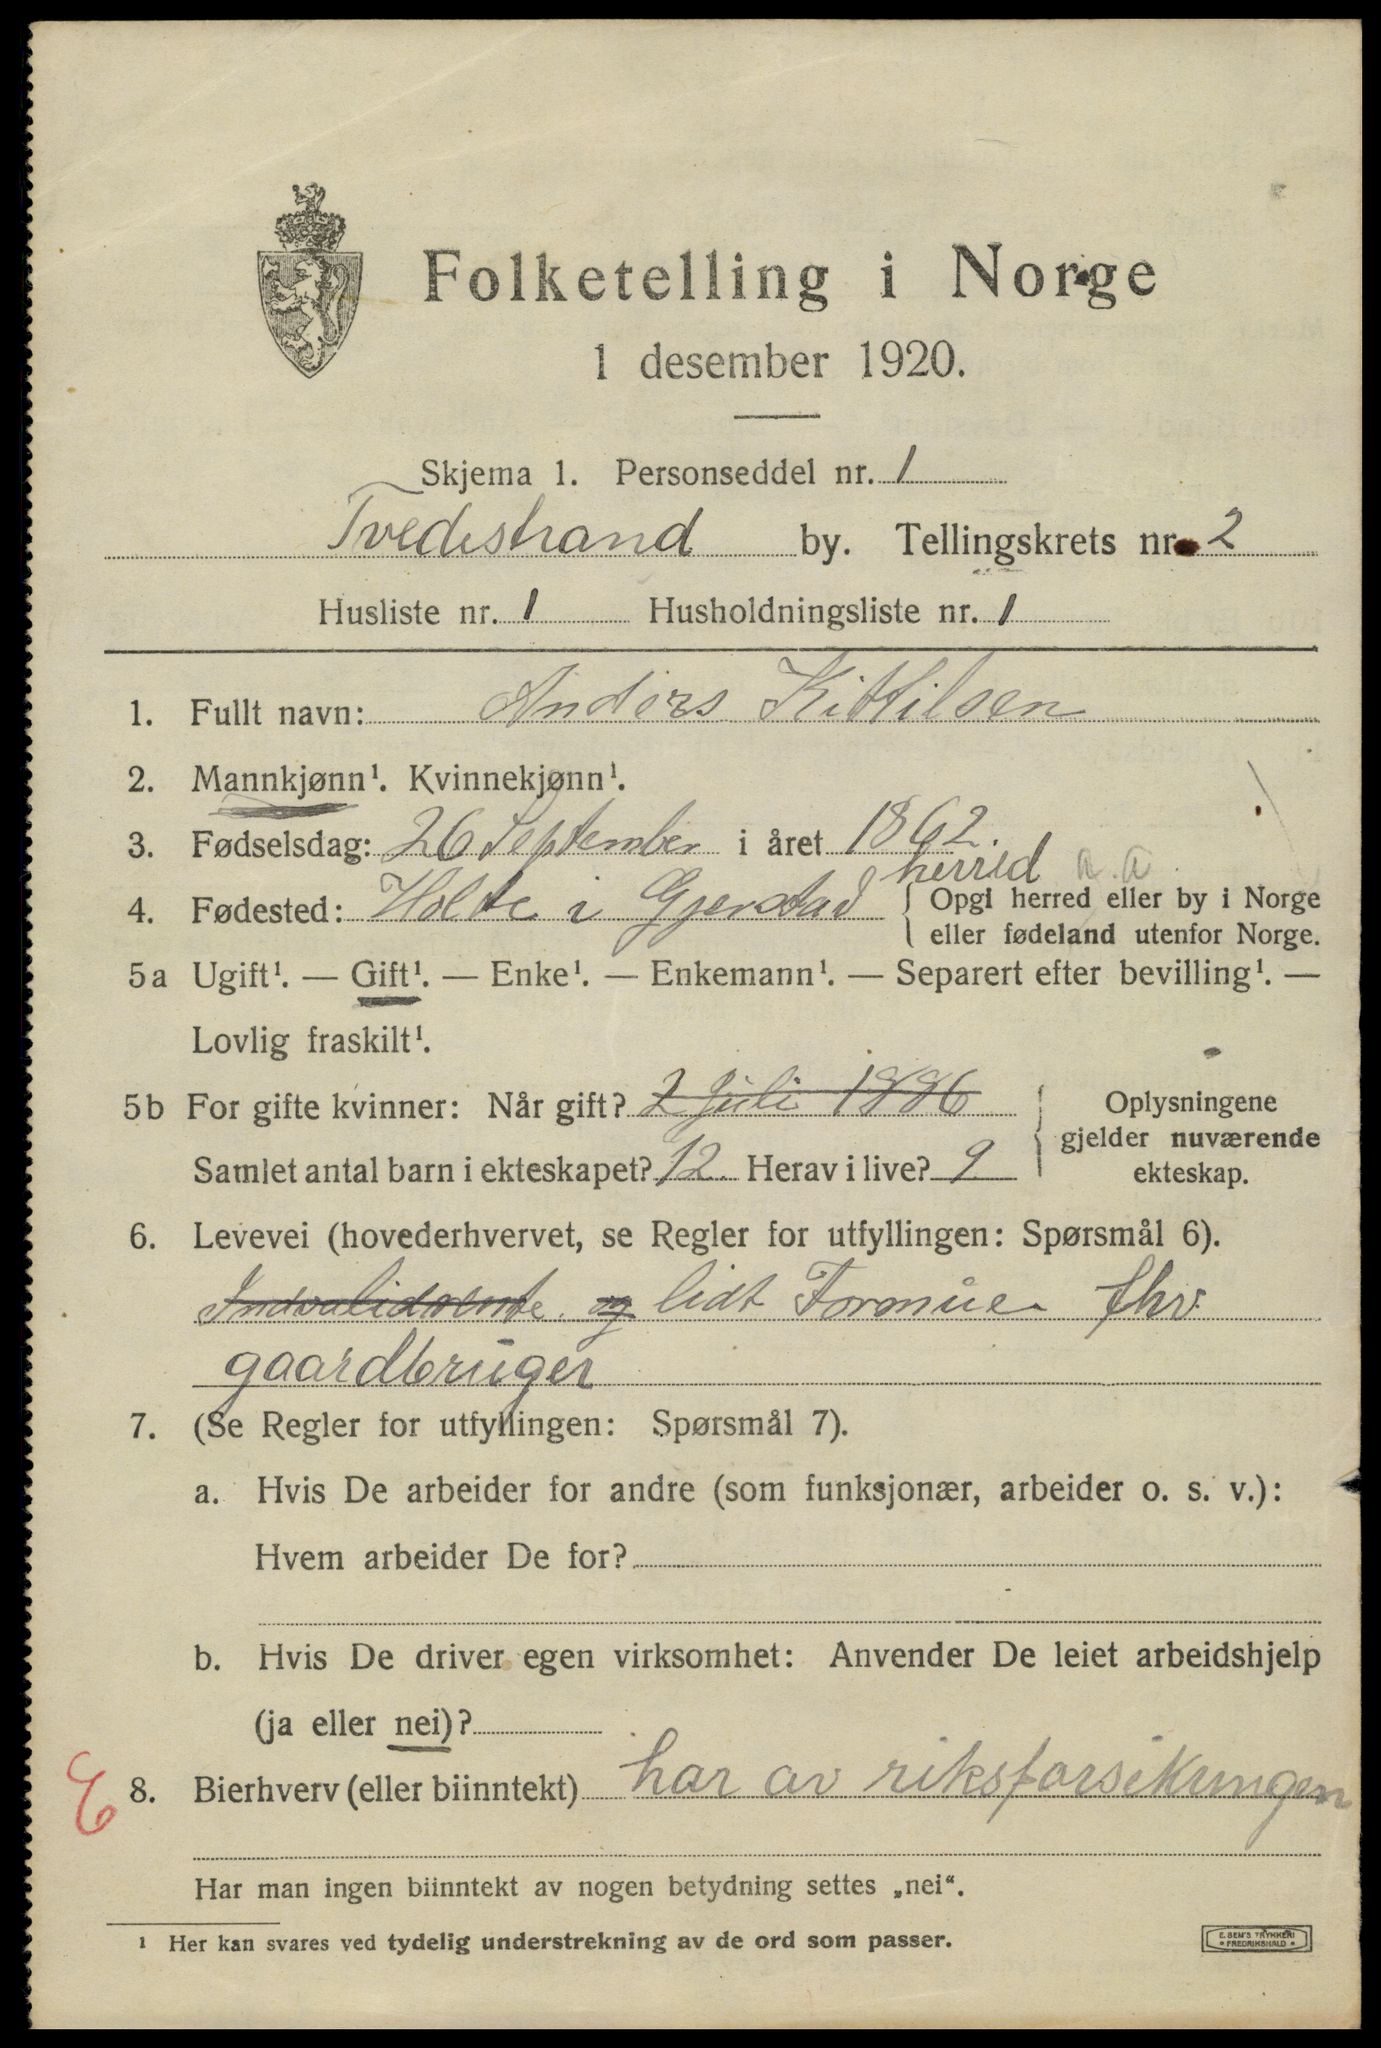 Folketelling i Norge
1 desember 1920.
Skjema 1. Personseddel nr. 1
Tvedestrand by. Tellingskrets nr. 2
Husliste nr. 1 Husholdningsliste nr. 1
1. Fullt navn: Anders Kittilsen
2. Mannkjønn¹. Kvinnekjønn¹.
3. Fødselsdag: 26 September i året 1862.
herred a.a
4. Fødested: Holte i Gjerstad { Opgi herred eller by i Norge
eller fødeland utenfor Norge.
5a Ugift¹. — Gift¹. — Enke¹. — Enkemann¹. — Separert efter bevilling¹. —
Lovlig fraskilt¹.
5b For gifte kvinner: Når gift? 2 juli 1886
Samlet antal barn i ekteskapet? 12. Herav i live? 9
Oplysningene
gjelder nuværende
ekteskap.
6. Levevei (hovederhvervet, se Regler for utfyllingen: Spørsmål 6).
Indvalidrente og lidt Formue. fhv
gaardbruger
7. (Se Regler for utfyllingen: Spørsmål 7).
a. Hvis De arbeider for andre (som funksjonær, arbeider o. s. v.):
Hvem arbeider De for?
b. Hvis De driver egen virksomhet: Anvender De leiet arbeidshjelp
(ja eller nei)?
8. Bierhverv (eller biinntekt) har av riksforsikrungen
Har man ingen biinntekt av nogen betydning settes „nei“.
¹ Her kan svares ved tydelig understrekning av de ord som passer.
E. SEM'S TRYKKERI
FREDRIKSHALD